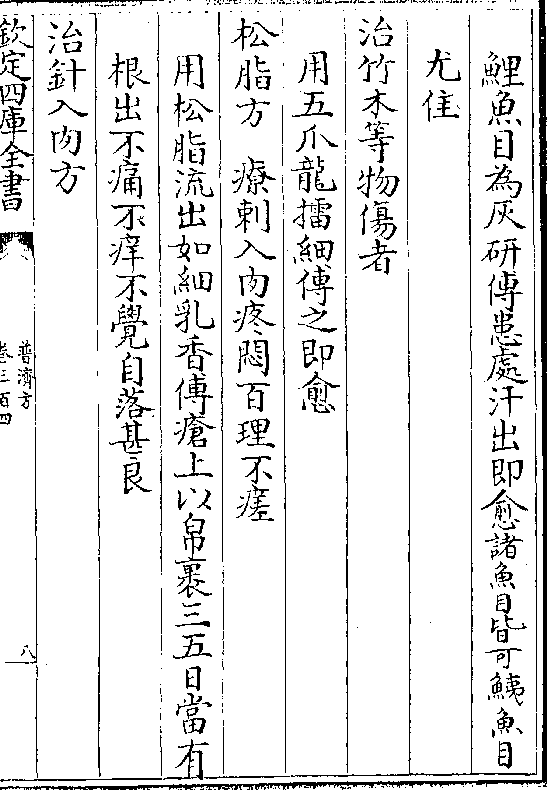 鯉魚目為灰研傅患處汗出即愈諸魚目皆可鮧魚目
尤佳
治竹木等物傷者
用五爪龍擂細傅之即愈
松脂方　療刺入肉疼悶百理不瘥
用松脂流出如細乳香傅瘡上以帛裹三五日當有
根出不痛不痒不覺自落甚良
治針入肉方
欽定四庫全書
普濟方
卷三百四
八